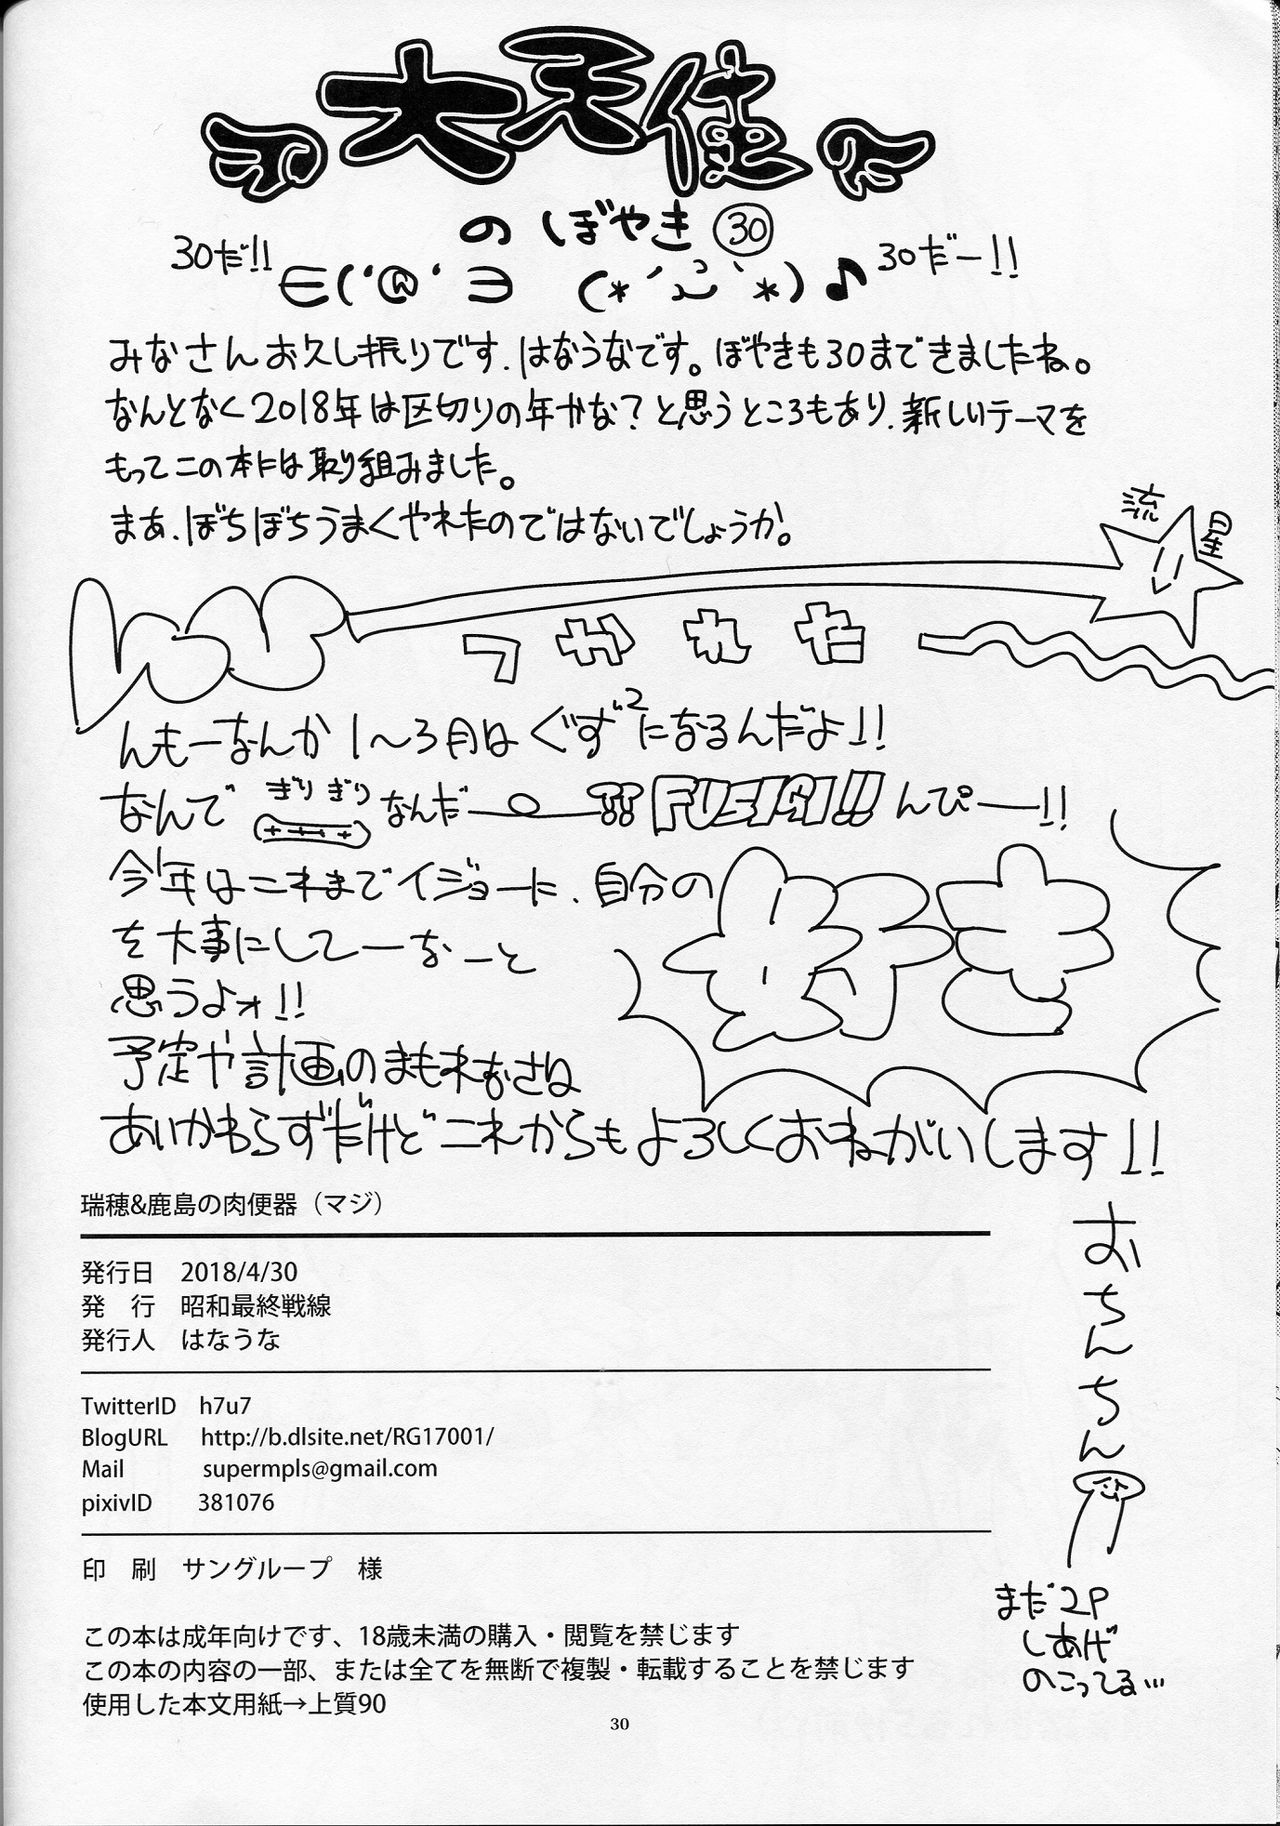 大天使
のぼやき㉚
30だ!!
30だー!!
∈('@'∋ (*´ `*)♪
みなさんお久し振りです、はなうなです。ぼやきも30まできましたね。
なんとなく2018年は区切りの年かな？と思うところもあり、新しいテーマを
もってこの本には取り組みました。
まあ、ぼちぼちうまくやれたのではないでしょうか。
流星
つかれた
んもーなんか1〜3月はぐず²になるんだよ!!
なんでぎりぎりなんだー!!FUSIGI!!んぴー!!
今年はこれまでイジョーに、自分の
好き
を大事にしてーなーと
思うよォ!!
予定や計画のまもれなさは
あいかわらずだけどこれからもよろしくおねがいします!!
おちんちん
まだ2P
しあげ
のこってる…
瑞穂&鹿島の肉便器（マジ）
発行日 2018/4/30
発 行 昭和最終戦線
発行人 はなうな
TwitterID h7u7
BlogURL http://b.dlsite.net/RG17001/
Mail supermpls@gmail.com
pixivID 381076
印 刷 サングループ 様
この本は成年向けです、18歳未満の購入・閲覧を禁じます
この本の内容の一部、または全てを無断で複製・転載することを禁じます
使用した本文用紙→上質90
30